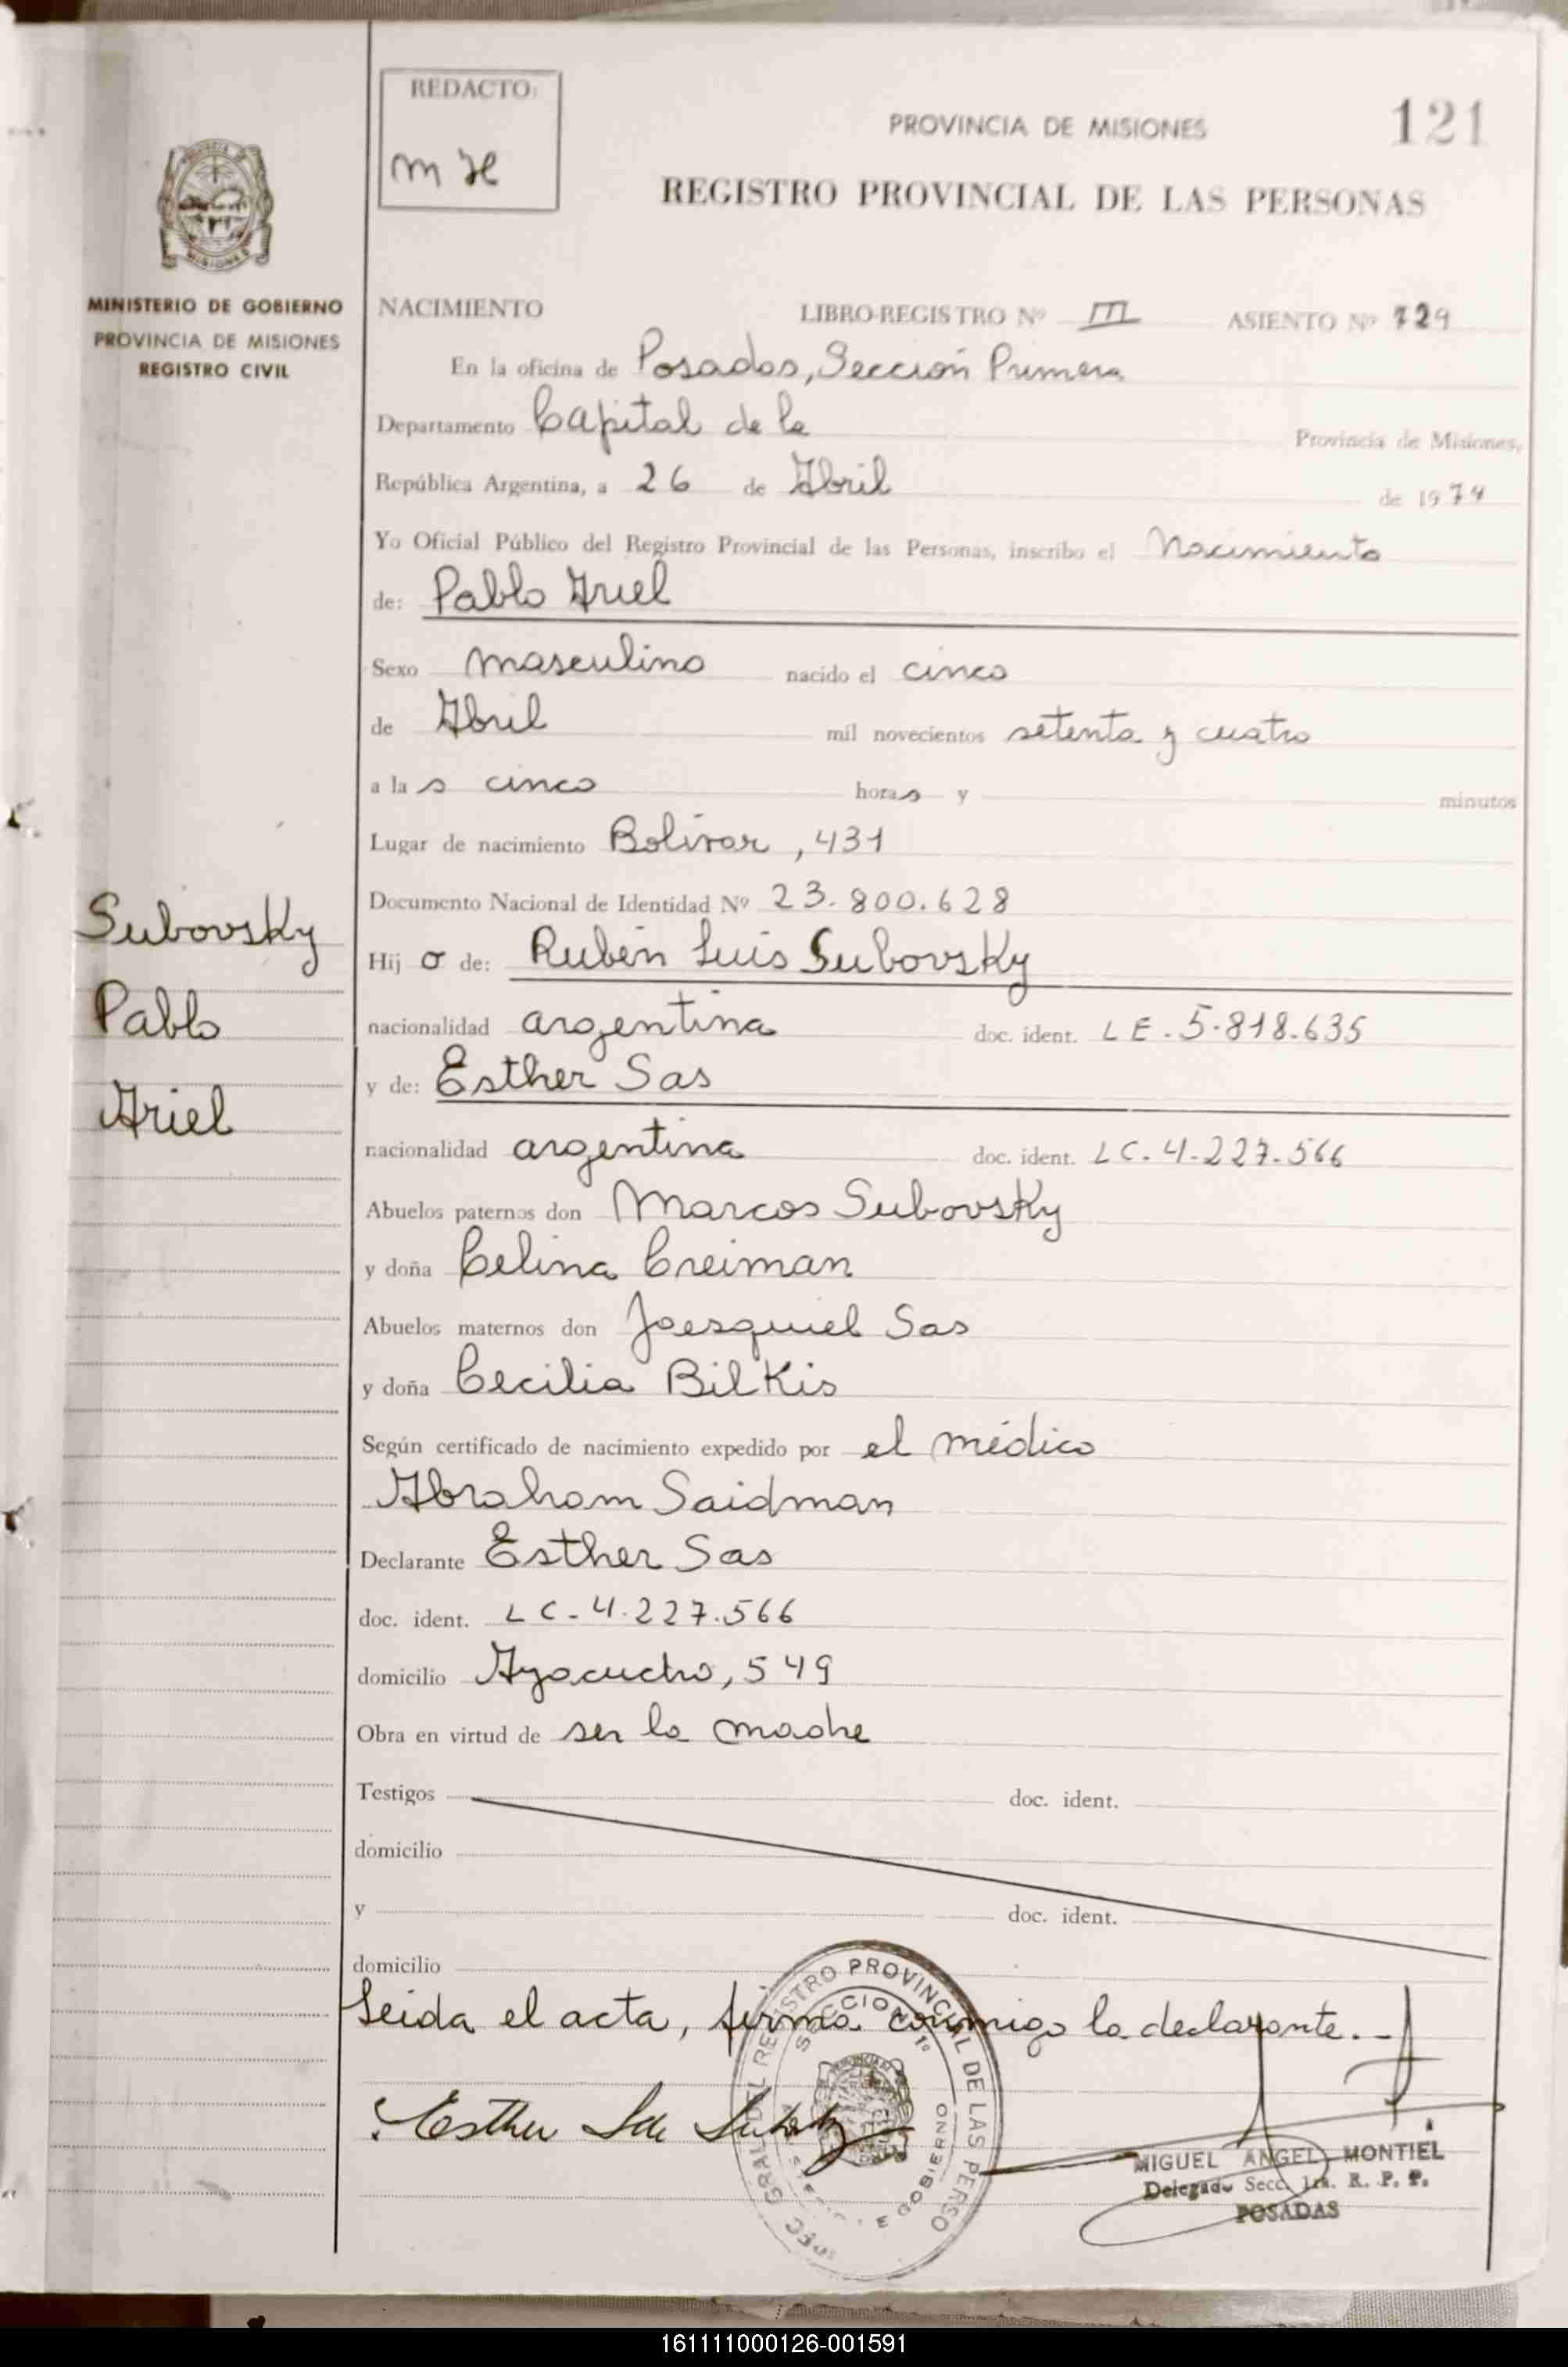 REDACTO:
PROVINCIA DE MISIONES
121
REGISTRO PROVINCIAL DE LAS PERSONAS
MISIONES
MINISTERIO DE GOBIERNO
PROVINCIA DE MISIONES
REGISTRO CIVIL
NACIMIENTO LIBRO-REGISTRO Nº III ASIENTO Nº 729
En la oficina de Posadas, Sección Primera
Departamento Capital de la Provincia de Misiones,
República Argentina, a 26 de Abril de 1974
Yo Oficial Público del Registro Provincial de las Personas, inscribo el Nacimiento
de: Pablo Ariel
Sexo masculino nacido el cinco
de Abril mil novecientos setenta y cuatro
a las cinco horas y minutos
Lugar de nacimiento Bolívar, 431
Documento Nacional de Identidad Nº 23.800.628
Hijo de: Rubén Luis Subovsky
nacionalidad argentina doc. ident. LE. 5.818.635
y de: Esther Sas
nacionalidad argentina doc. ident. LC. 4.227.566
Abuelos paternos don Marcos Subovsky
y doña Celina Creiman
Abuelos maternos don Joesquiel Sas
y doña Cecilia Bilkis
Según certificado de nacimiento expedido por el médico
Abraham Saidman
Declarante Esther Sas
doc. ident. LC-4.227.566
domicilio Ayacucho, 549
Obra en virtud de ser la madre
Testigos doc. ident.
domicilio
y doc. ident.
domicilio
Leida el acta, firma conmigo la declarante.-
Subovsky
Pablo
Ariel
Esther
GRAL DEL REGISTRO PROVINCIAL DE LAS PERSO
SECCION 1º
GOBIERNO
MIGUEL ANGEL MONTIEL
Delegado Secc. 1ra. R. P. P.
POSADAS
161111000126-001591